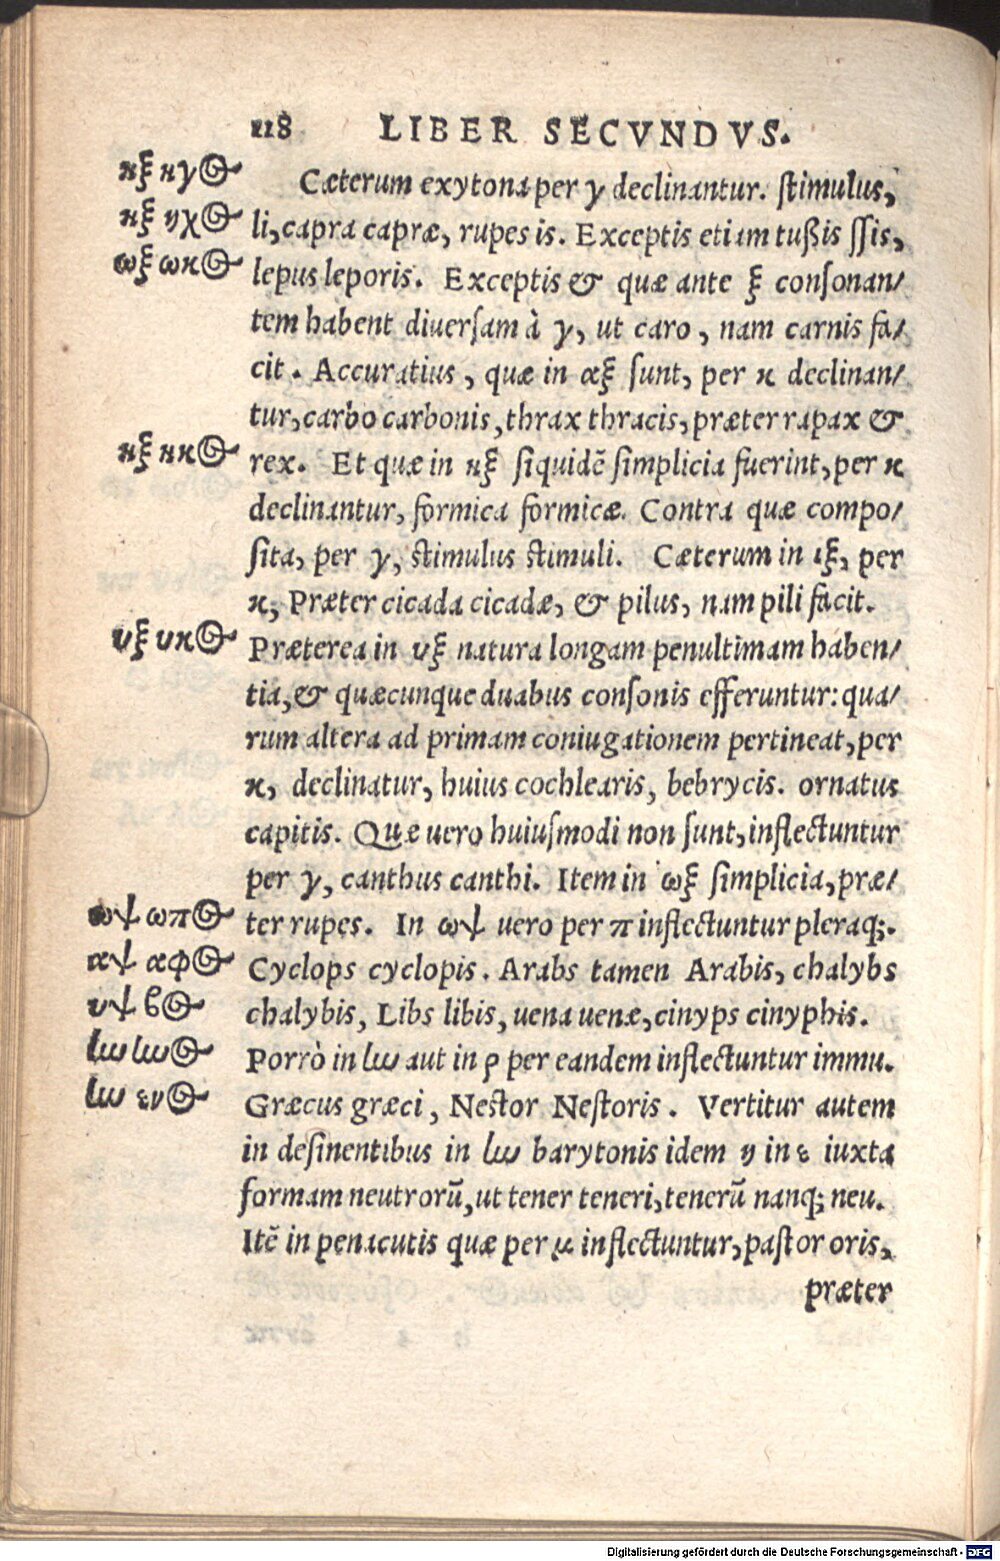 118 LIBER SECVNDVS.
κξ κγος
Cæterum exytona per γ declinantur. ſtimulus,
κξ ηχος
li, capra capræ, rupes is. Exceptis etiam tuſsis ſſis,
ωξ ωκος
lepus leporis. Exceptis & quæ ante ξ conſonan/
tem habent diuerſam à γ, ut caro, nam carnis fa/
cit. Accuratius, quæ in αξ ſunt, per κ declinan/
tur, carbo carbonis, thrax thracis, præter rapax &
κξ κκος
rex. Et quæ in κξ ſiquidẽ ſimplicia fuerint, per κ
declinantur, formica formicæ. Contra quæ compo/
ſita, per γ, ſtimulus ſtimuli. Cæterum in ιξ, per
κ, Præter cicada cicadæ, & pilus, nam pili facit.
υξ υκος
Præterea in υξ natura longam penultimam haben/
tia, & quæcunque duabus conſonis efferuntur: qua/
rum altera ad primam coniugationem pertineat, per
κ, declinatur, huius cochlearis, bebrycis. ornatus
capitis. Quæ uero huiuſmodi non ſunt, inflectuntur
per γ, canthus canthi. Item in ωξ ſimplicia, præ/
ωψ ωπος
ter rupes. In ωψ uero per π inflectuntur pleraq;.
αψ αφος
Cyclops cyclopis. Arabs tamen Arabis, chalybs
υψ βος
chalybis, Libs libis, uena uenæ, cinyps cinyphis.
Porrò in aut in ρ per eandem inflectuntur immu.
Græcus græci, Neſtor Neſtoris. Vertitur autem
in deſinentibus in barytonis idem η in ε iuxta
formam neutrorũ, ut tener teneri, tenerũ nanq; neu.
Itẽ in penacutis quæ per μ inflectuntur, paſtor oris,
præter
Digitalisierung gefördert durch die Deutsche Forschungsgemeinschaft - DFG